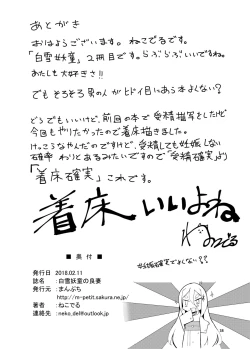 あとがき
おはようございます。ねこでるです。
「白雪妖童」2冊目です。らぶらぶいいですね。
わたしも大好きさ!!
でもそろそろ男の人がドイ目にあう本よくない?
どうでもいいけど、前回の本で受精描写したけど
今回もやりたかったので着床描きました。
けっこうなやんだのですけど、受精しても妊娠しない
確率わりとあるみたいですので「受精確実」より
「着床確実」これです。
着床いいよね
ねこでる
妊娠確実でよくない??
■ 奥 付 ■
発行日 2018.02.11
誌名 :白雪妖童の良妻
発行元 :まんぷち
http://m-petit.sakura.ne.jp/
著者 :ねこでる
連絡先 :neko_del@outlook.jp